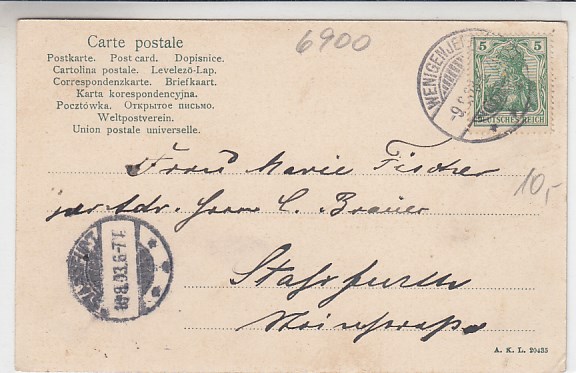 Carte postale
Postkarte. Post card. Dopisnice.
Cartolina postale. Levelező-Lap.
Correspondenzkarte. Briefkaart.
Karta korespondencyjna.
Pocztówka. Открытое письмо.
Weltpostverein.
Union postale universelle.
6900
WENIGENJE
5 5
DEUTSCHES REICH
Frau Marie Fischer
10,-
per Adr. Herrn C. Brauer
8.03.6-7
Staßfurth
A. K. L. 20435